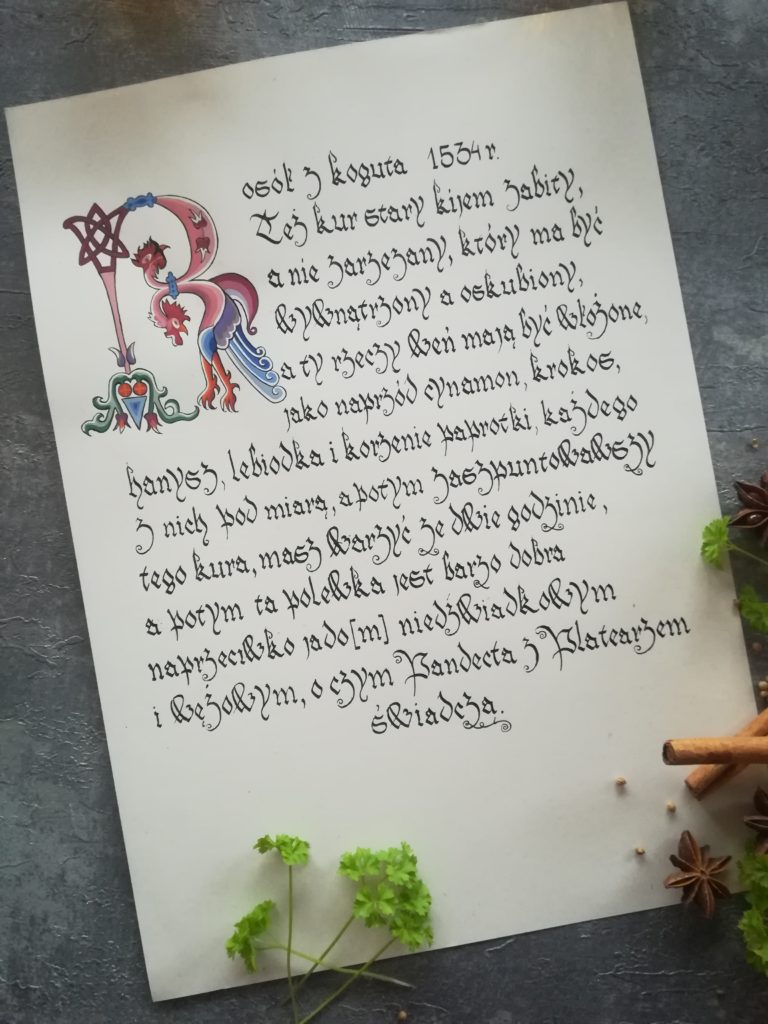 Rosół z koguta 1534 r.
Też kur stary kijem zabity,
a nie zarzezany, który ma być
wywnątrzony a oskubiony,
a ty rzeczy weń mają być włożone,
jako naprzód cynamon, krokos,
hanysz, lebiodka i korzenie paprotki, każdego
z nich pod miarą, a potym zaszpuntowawszy
tego kura, masz warzyć ze dwie godzinie,
a potym ta polewka jest barzo dobra
naprzeciwko jado[m] niedźwiadkowym
i wężowym, o czym Pandecta z Platearzem
świadczą.